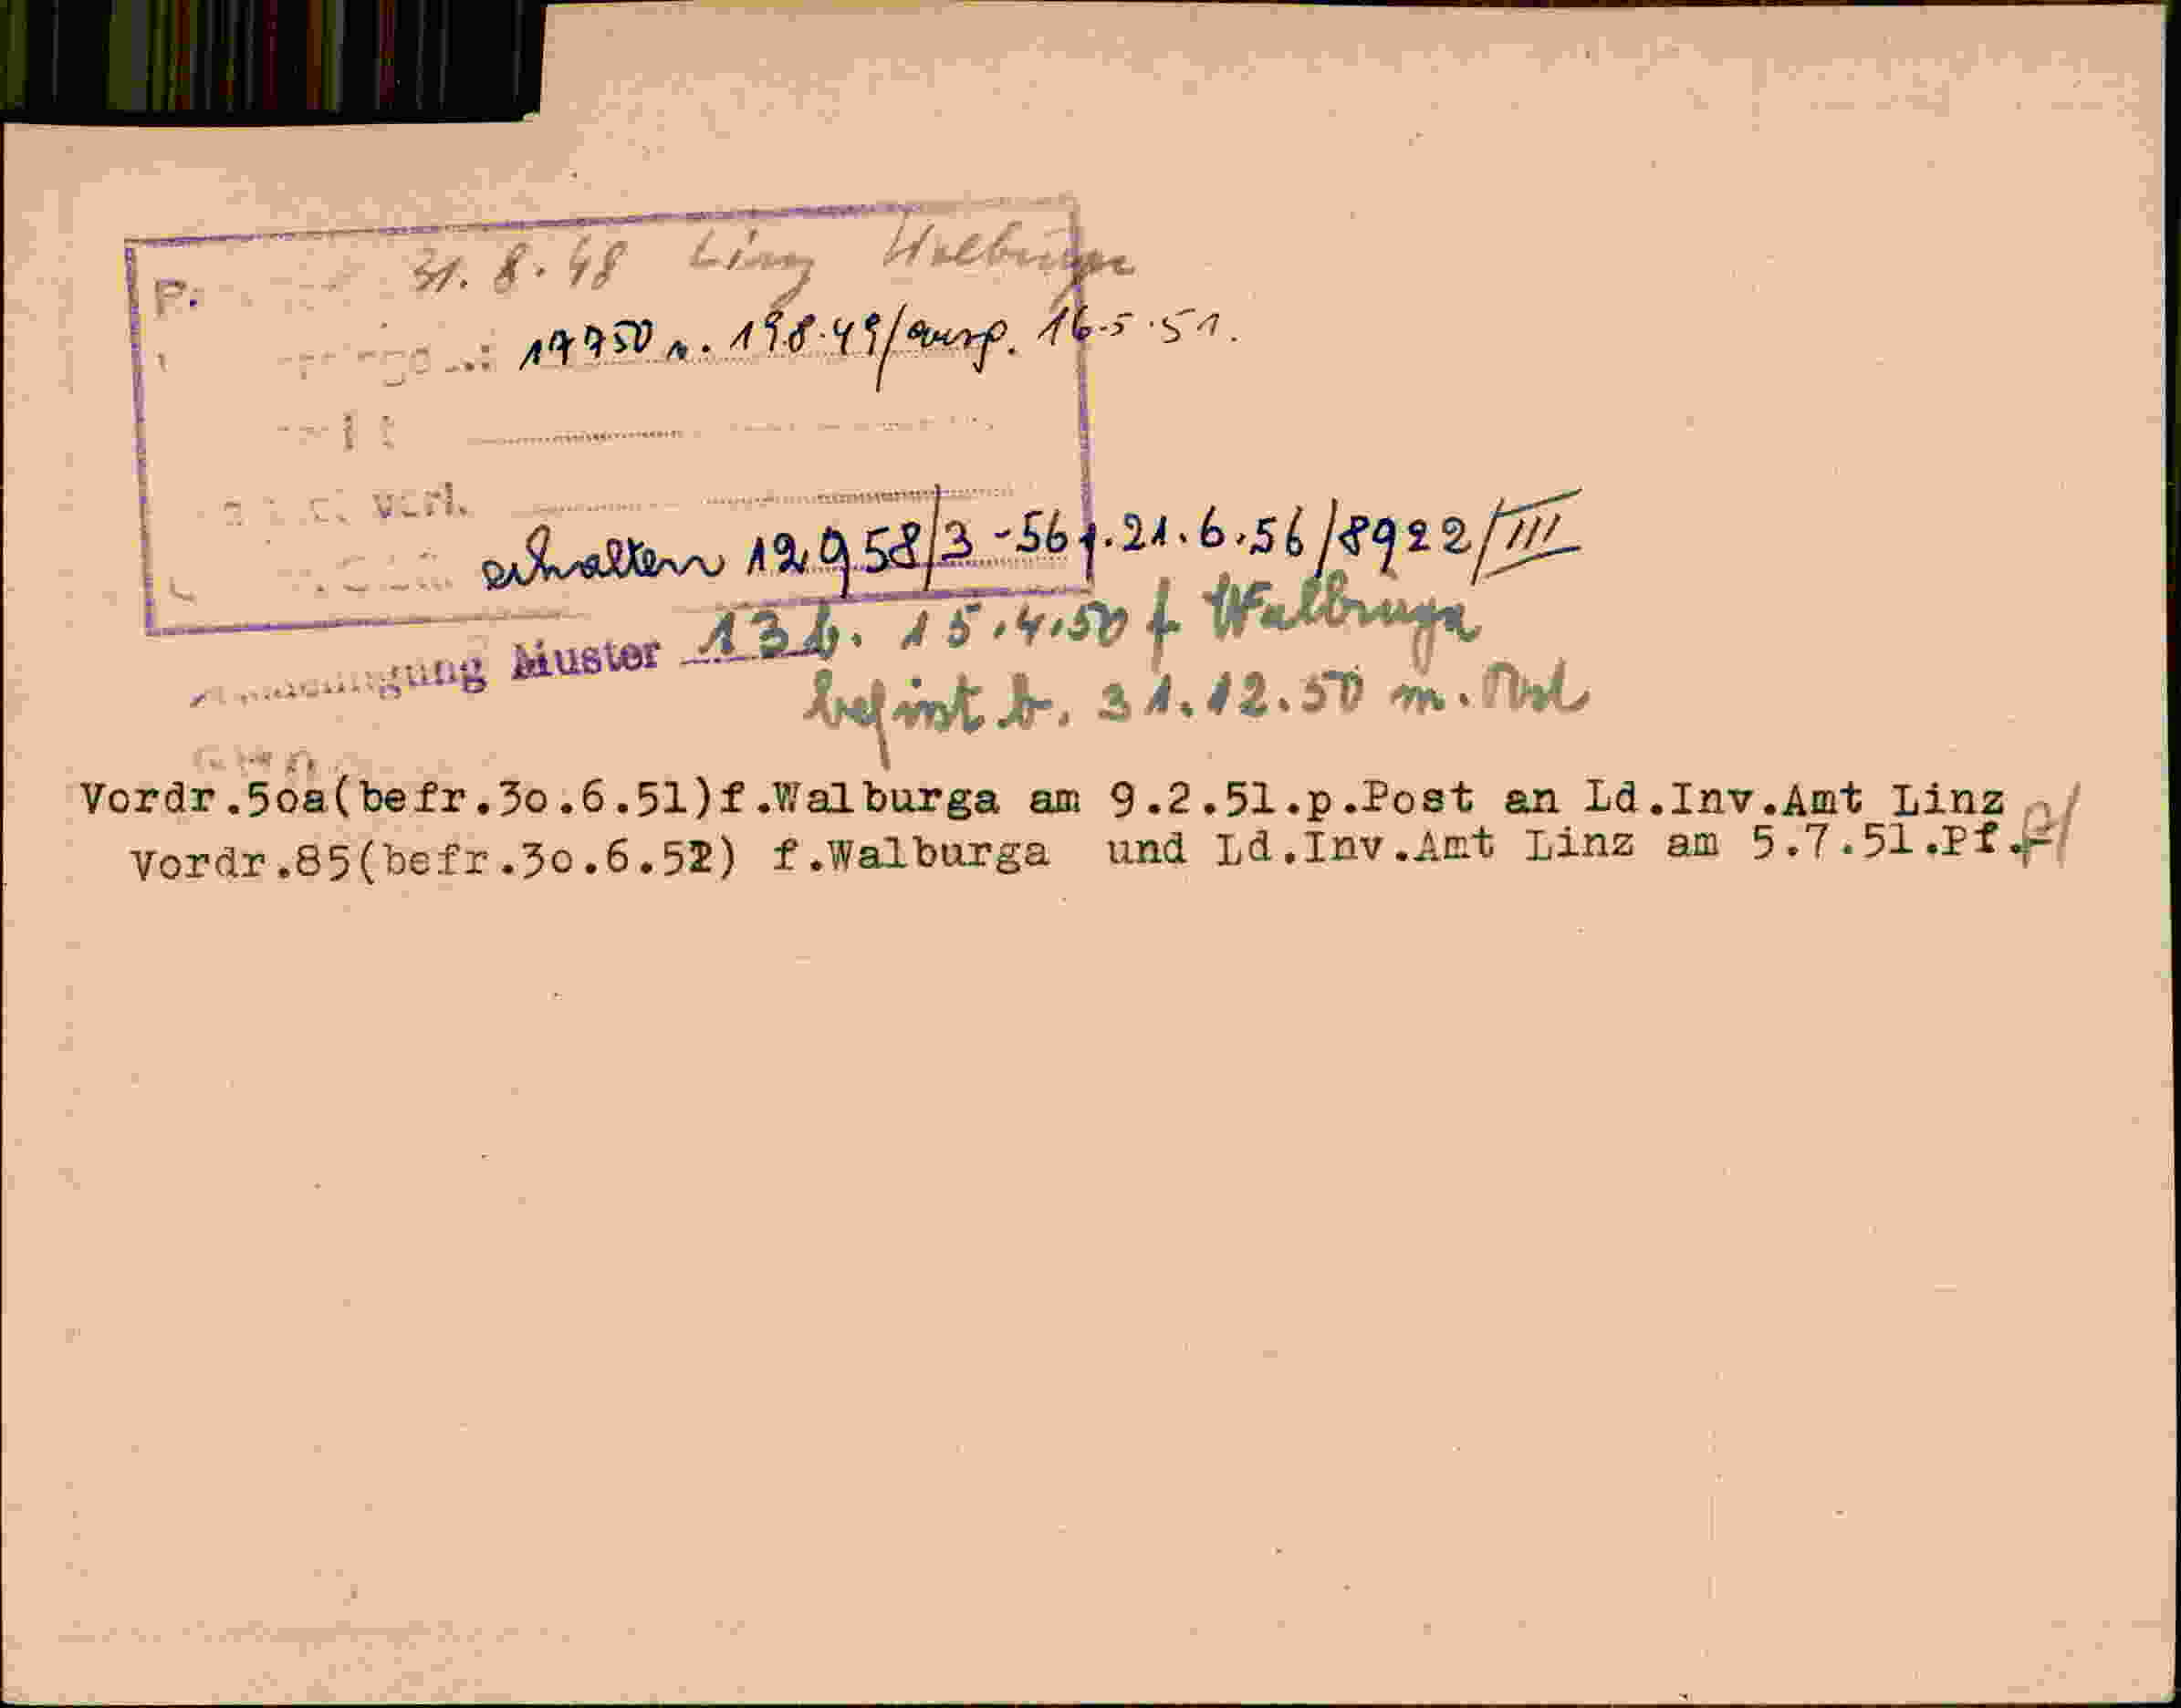 31. 8. 48 Linz Walburga
17750 v. 19.8.49/ausp. 16.5.51.
verl.
erhalten 12958/3-56 f. 21.6.56/8922/III
Muster 13b. 15.4.50 f Walburga
befrist b. 31.12.50 m. Post
Vordr.5oa(befr.3o.6.51)f.Walburga am 9.2.51.p.Post an Ld.Inv.Amt Linz
Vordr.85(befr.3o.6.52) f.Walburga und Ld.Inv.Amt Linz am 5.7.51.Pf.